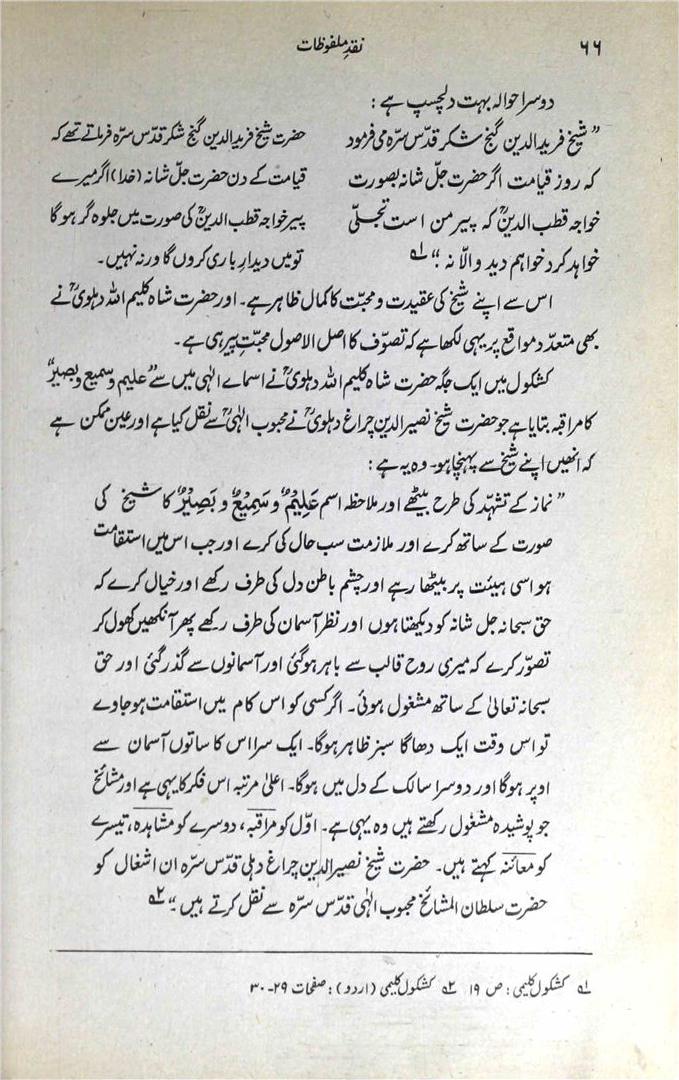 ۶۶
نقدِ ملفوظات
دوسرا حوالہ بہت دلچسپ ہے :
” شیخ فرید الدین گنج شکر قدّس سرّہ می فرمود
کہ روز قیامت اگر حضرت جلّ شانہ بصورت
خواجہ قطب الدینؒ کہ پیر من است تجلّی
خواہد کرد خواہم دید و الّا نہ ؛“ ۱ـہ
حضرت شیخ فرید الدین گنج شکر قدّس سرّہ فرماتے تھے کہ
قیامت کے دن حضرت جلّ شانہ (خدا) اگر میرے
پیر خواجہ قطب الدینؒ کی صورت میں جلوہ گر ہوگا
تو میں دیدارِ باری کروں گا ورنہ نہیں۔
اس سے اپنے شیخ کی عقیدت و محبّت کا کمال ظاہر ہے۔ اور حضرت شاہ کلیم اللہ دہلویؒ نے
بھی متعدّد مواقع پر یہی لکھا ہے کہ تصوّف کا اصل الاصول محبّتِ پیر ہی ہے۔
کشکول میں ایک جگہ حضرت شاہ کلیم اللہ دہلویؒ نے اسمائے الٰہی میں سے ”علیم و سمیع و بصیر“
کا مراقبہ بتایا ہے جو حضرت شیخ نصیر الدین چراغ دہلویؒ نے محبوب الٰہیؒ سے نقل کیا ہے اور عین ممکن ہے
کہ انھیں اپنے شیخ سے پہنچا ہو۔ وہ یہ ہے :
” نماز کے تشہّد کی طرح بیٹھے اور ملاحظہ اسم عَلِیْمٌ وَ سَمِیْعٌ وَ بَصِیْرٌ کا شیخ کی
صورت کے ساتھ کرے اور ملازمت سب حال کی کرے اور جب اس میں استقامت
ہو اسی ہیئت پر بیٹھا رہے اور چشم باطن دل کی طرف رکھے اور خیال کرے کہ
حق سبحانہ جل شانہ کو دیکھتا ہوں اور نظر آسمان کی طرف رکھے پھر آنکھیں کھول کر
تصوّر کرے کہ میری روح قالب سے باہر ہوگئی اور آسمانوں سے گذر گئی اور حق
سبحانہ تعالیٰ کے ساتھ مشغول ہوئی۔ اگر کسی کو اس کام میں استقامت ہو جاوے
تو اس وقت ایک دھاگا سبز ظاہر ہوگا۔ ایک سرا اس کا ساتوں آسمان سے
اوپر ہوگا اور دوسرا سالک کے دل میں ہوگا۔ اعلیٰ مرتبہ اس فکر کا یہی ہے اور مشائخ
جو پوشیدہ مشغول رکھتے ہیں وہ یہی ہے۔ اوّل کو مراقبہ، دوسرے کو مشاہدہ، تیسرے
کو معائنہ کہتے ہیں۔ حضرت شیخ نصیر الدین چراغ دہلی قدّس سرّہ ان اشغال کو
حضرت سلطان المشائخ محبوب الٰہی قدّس سرّہ سے نقل کرتے ہیں ؛“ ۲ـہ
۱ـہ کشکول کلیمی : ص ۱۹ ۲ـہ کشکول کلیمی (اردو) : صفحات ۲۹-۳۰